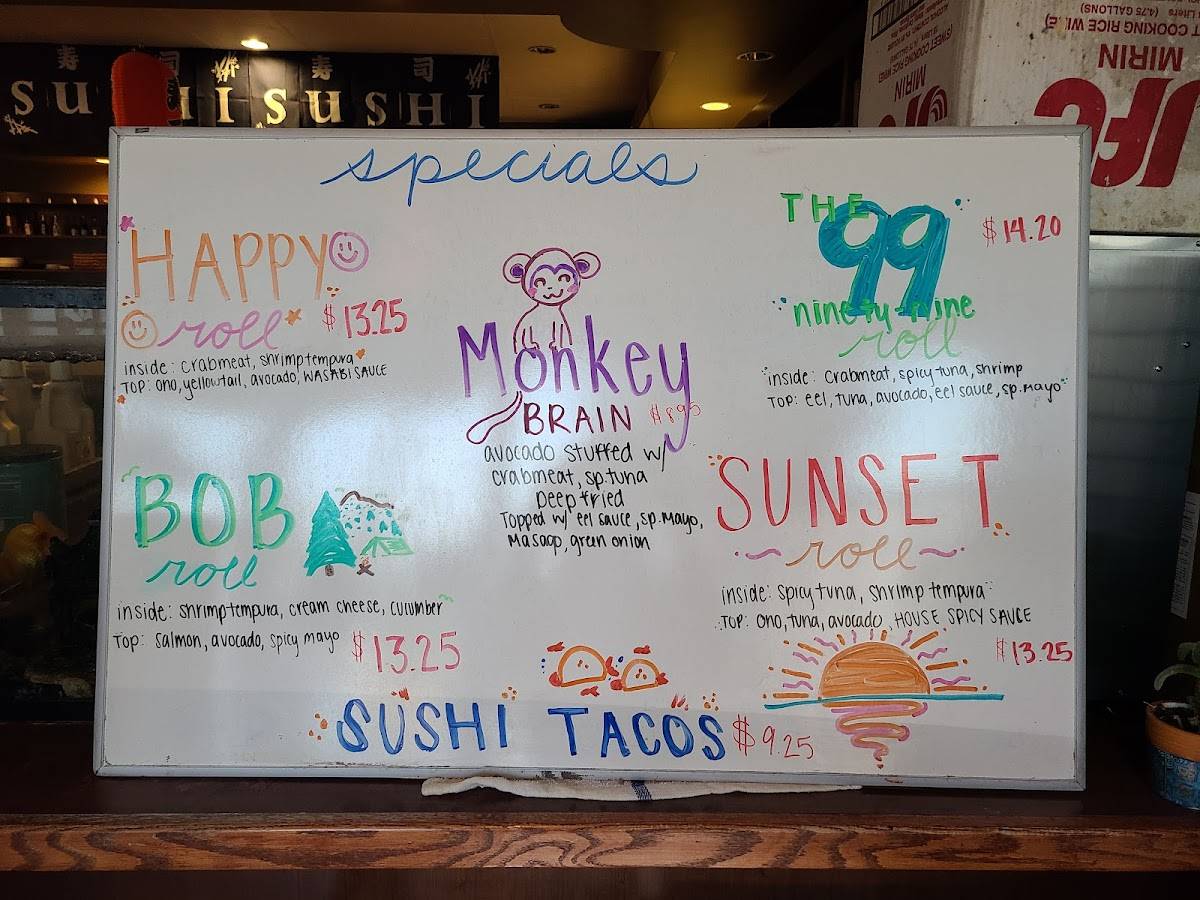 寿 司 寿 司
SUSHI SUSHI
MIRIN
JFC
MIRIN
specials
HAPPY
roll $13.25
inside: crabmeat, shrimp tempura
TOP: ono, yellowtail, avocado, WASABI SAUCE
BOB
roll
inside: shrimp tempura, cream cheese, cucumber
Top: salmon, avocado, spicy mayo $13.25
Monkey
BRAIN $8.95
avocado stuffed w/
crabmeat, sp.tuna
Deep fried
Topped w/ eel sauce, sp.Mayo,
Masago, green onion
THE
99 $14.20
ninety-nine
roll
inside: crabmeat, spicy tuna, shrimp
TOP: eel, tuna, avocado, eel sauce, sp.mayo
SUNSET
roll
inside: spicy tuna, shrimp tempura
TOP: ono, tuna, avocado, HOUSE SPICY SAUCE
$13.25
SUSHI TACOS $9.25